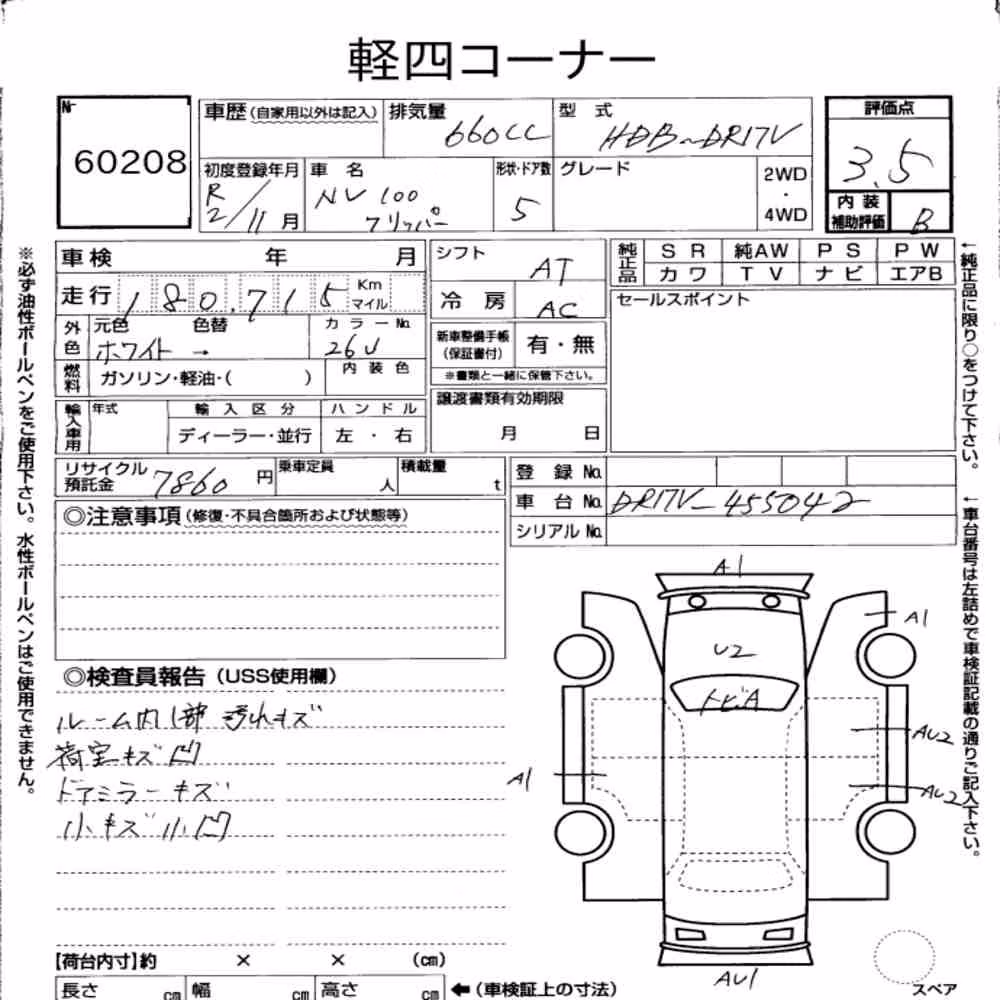 軽四コーナー
№
60208
車歴(自家用以外は記入)
排気量
660CC
型 式
HBD-DR17V
評価点
3.5
初度登録年月
R
2/11月
車 名
NV100
クリッパー
形状・ドア数
5
グレード
2WD
・
4WD
内 装
補助評価
B
車検 年 月
シフト
AT
純正品
S R 純AW P S P W
カワ T V ナビ エアB
走行 180,715 Km
マイル
冷 房 AC
セールスポイント
外色
元色 色替
ホワイト →
カラー№
26U
新車整備手帳
(保証書付)
有・無
※書類と一緒に保管下さい。
燃料
ガソリン・軽油・( )
内 装 色
輸入車用
年式
輸 入 区 分
ディーラー・並行
ハ ン ド ル
左 ・ 右
譲渡書類有効期限
月 日
リサイクル
預託金
7860円
乗車定員
人
積載量
t
登 録 №
車 台 № DR17V-455042
シリアル №
◎注意事項(修復・不具合箇所および状態等)
◎検査員報告(USS使用欄)
ルーム内 汚れキズ
荷室キズ凹
ドアミラーキズ
小キズ小凹
A1
A1
U2
トビA
AU2
A1
AU2
AU1
スペア
【荷台内寸】約 × × (cm)
長さ cm 幅 cm 高さ cm
←(車検証上の寸法)
※必ず油性ボールペンをご使用下さい。水性ボールペンはご使用できません。
←純正品に限り○をつけて下さい。
←車台番号は左詰めで車検証記載の通りご記入下さい。